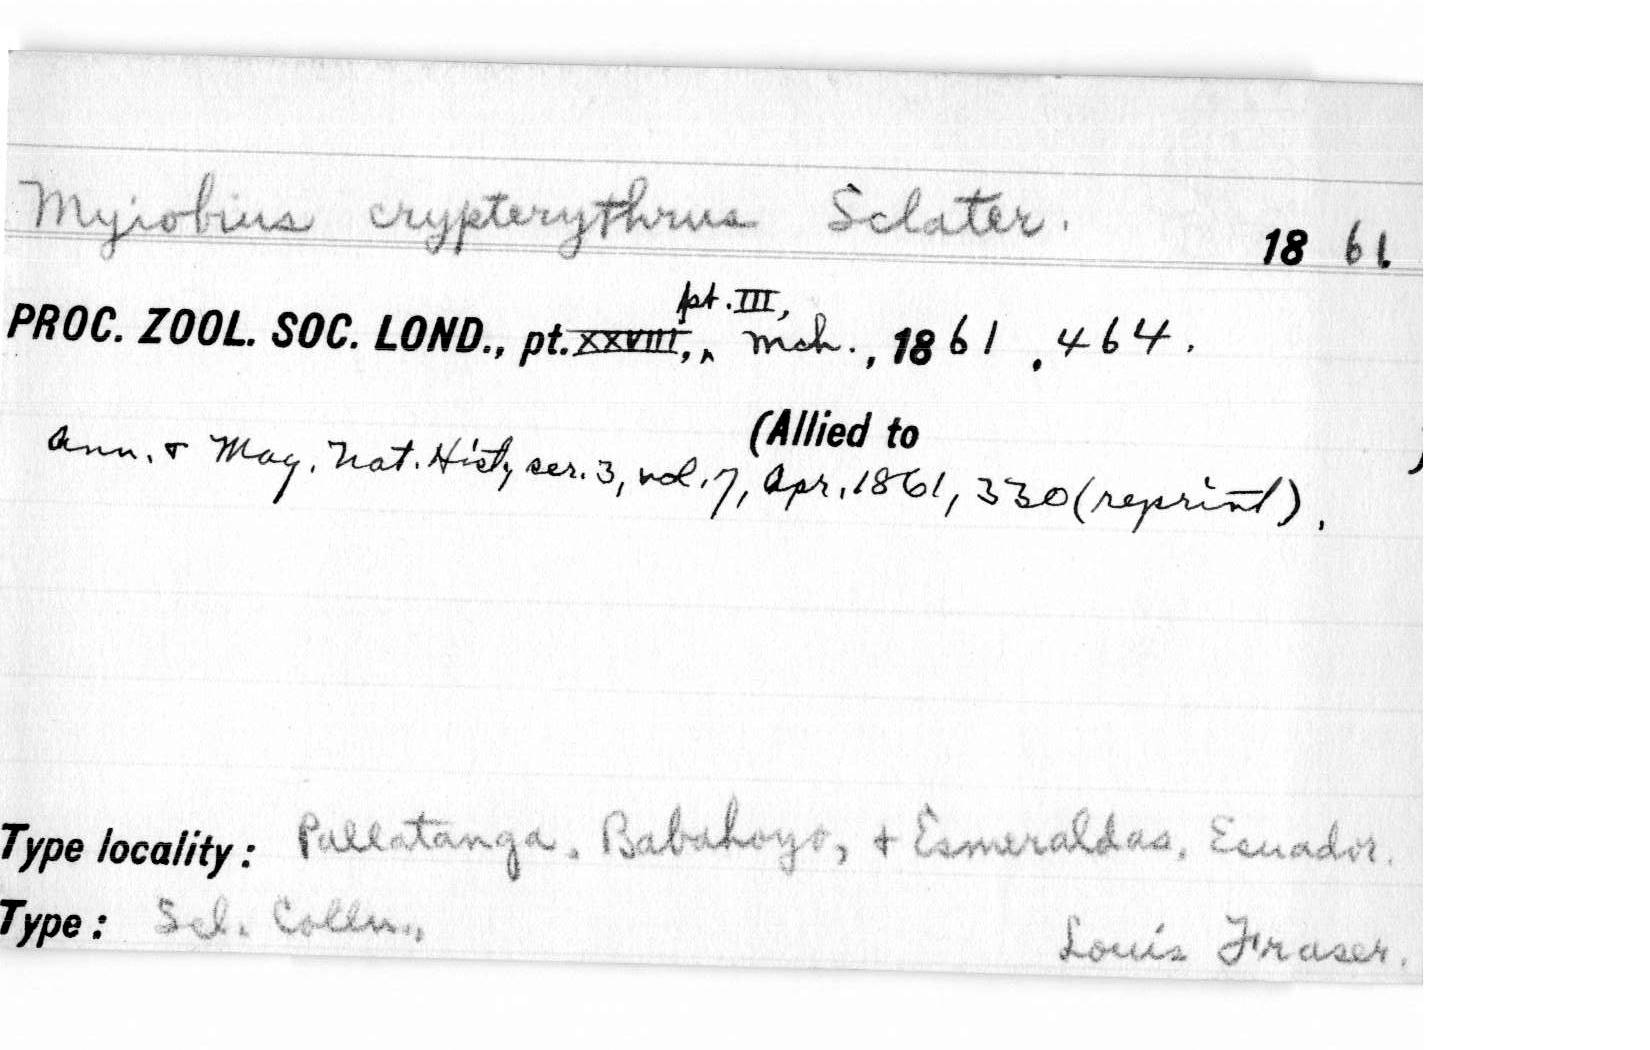 Myiobius crypterythrus Sclater. 1861.
pt. III,
PROC. ZOOL. SOC. LOND., pt. XXVIII, ‸ Mch., 1861, 464.
(Allied to )
Ann. & Mag. Nat. Hist, ser. 3, vol. 7, Apr. 1861, 330 (reprint).
Type locality: Pallatanga, Babahoyo, & Esmeraldas, Ecuador.
Type: Scl. Colln., Louis Fraser.